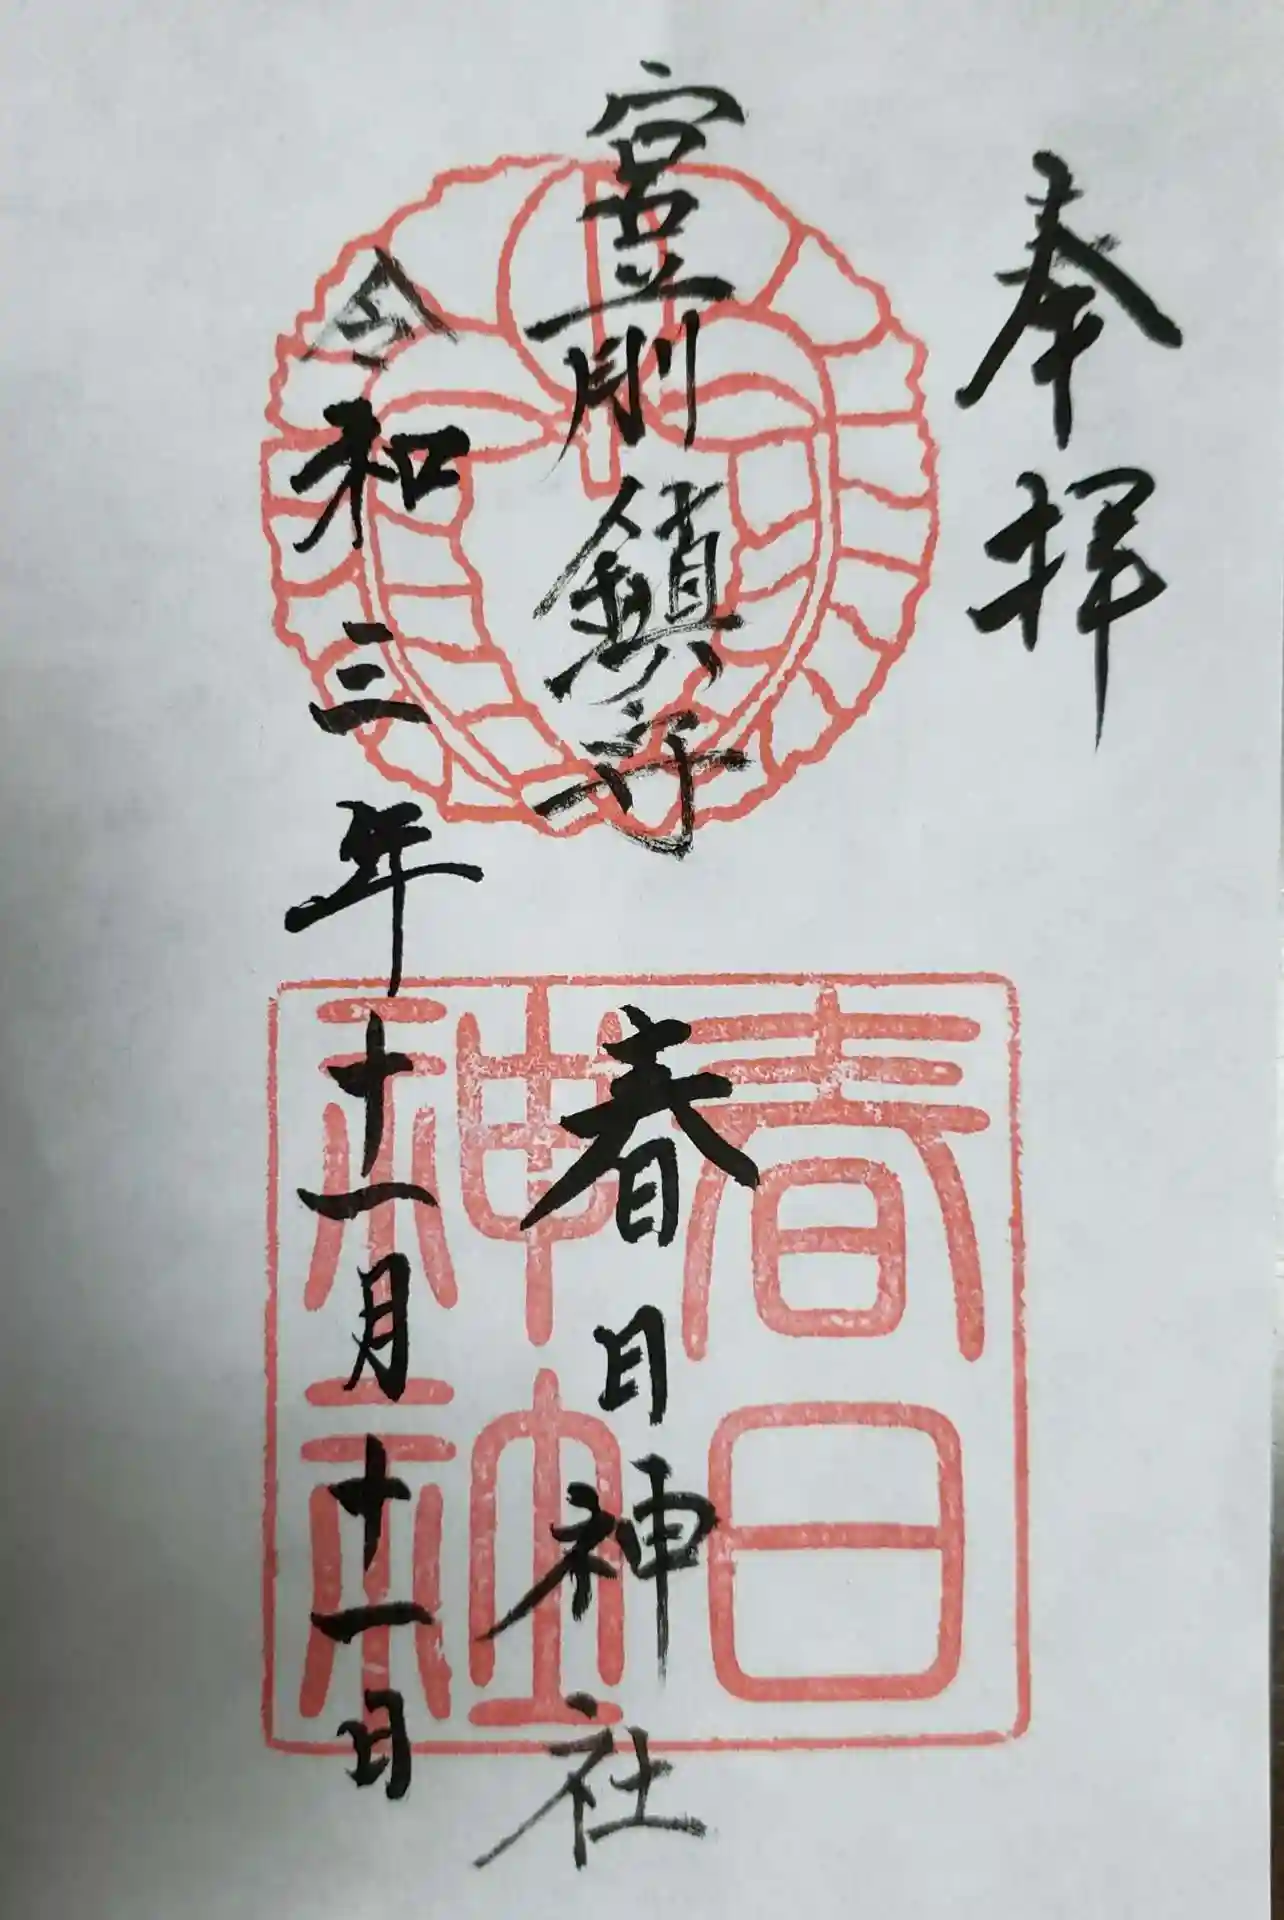 奉拝
宮前鎮守 春日神社
令和三年十一月十一日
春日
神社